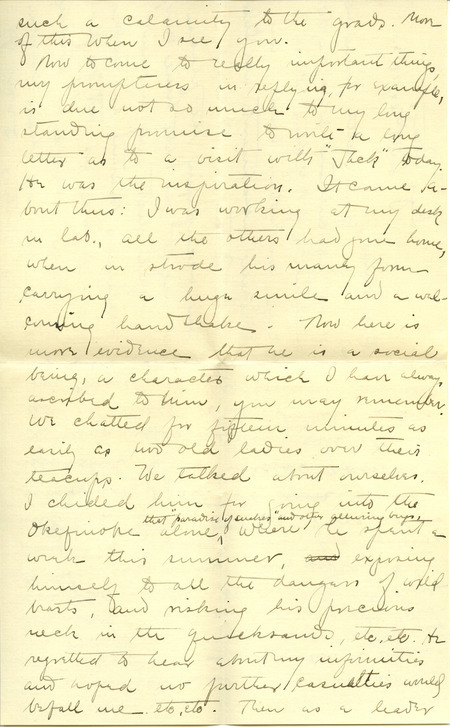 such a calamity to the grads. More
of this when I see you.
Now to come to really important things,
my promptness in replying, for example,
is due not so much to my long
standing promise to write a long
letter as to a visit with "Jack" today.
He was the inspiration. It came a-
bout thus: I was working at my desk
in lab., all the others had gone home,
when in strode his manly form
carrying a huge smile and a wel-
coming handshake. Now here is
more evidence that he is a social
being, a character which I have always
ascribed to him, you may remember.
We chatted for fifteen minutes as
easily as two old ladies over their
teacups. We talked about ourselves.
I chided him for going into the
that "paradise of snakes" and other alluring bugs
Okefinoke alone, where he spent a
week this summer, and exposing
himself to all the dangers of wild
beasts, and risking his precious
neck in the quicksands, etc. etc. He
regretted to hear about my infirmities
and hoped no further casualties would
befall me etc. etc. Then as a leader